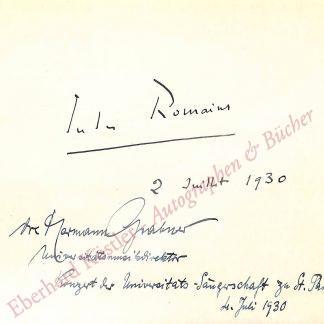 Jules Romains
2 Juillet 1930
Dr. Hermann Grabner
Universitätsmusikdirektor
Konzert der Universitäts-Sängerschaft zu St. Pau
4. Juli 1930
Eberhard Köstler Autographen & Bücher